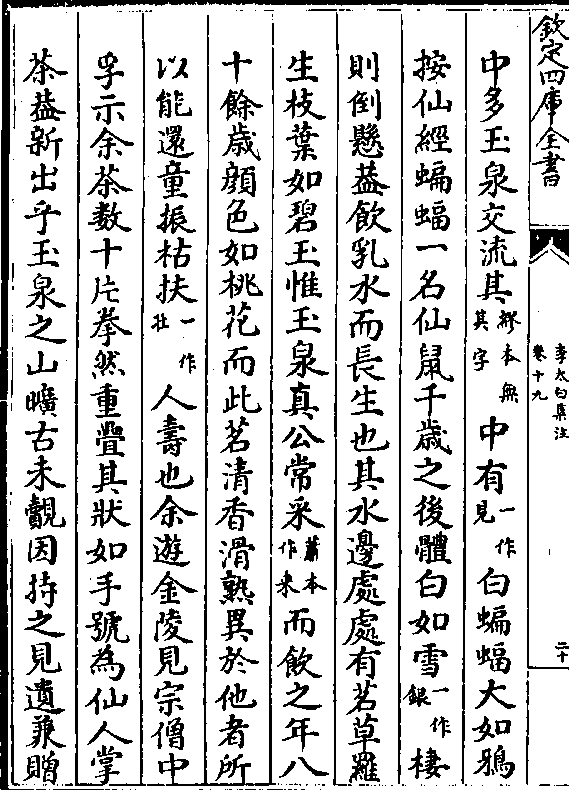 欽定四庫全書
李太白集注
卷十九
二十
中多玉泉交流其繆本無其字中有一作見白蝙蝠大如鴉
按仙經蝙蝠一名仙鼠千歲之後體白如雪一作銀棲
則倒懸葢飲乳水而長生也其水邊處處有茗草羅
生枝葉如碧玉惟玉泉真公常采蕭本作來而飲之年八
十餘歲顔色如桃花而此茗清香滑熟異於他者所
以能還童振枯扶一作壯人壽也余遊金陵見宗僧中
孚示余茶數十片拳然重疊其狀如手號為仙人掌
茶葢新出乎玉泉之山曠古未覿因持之見遺兼贈